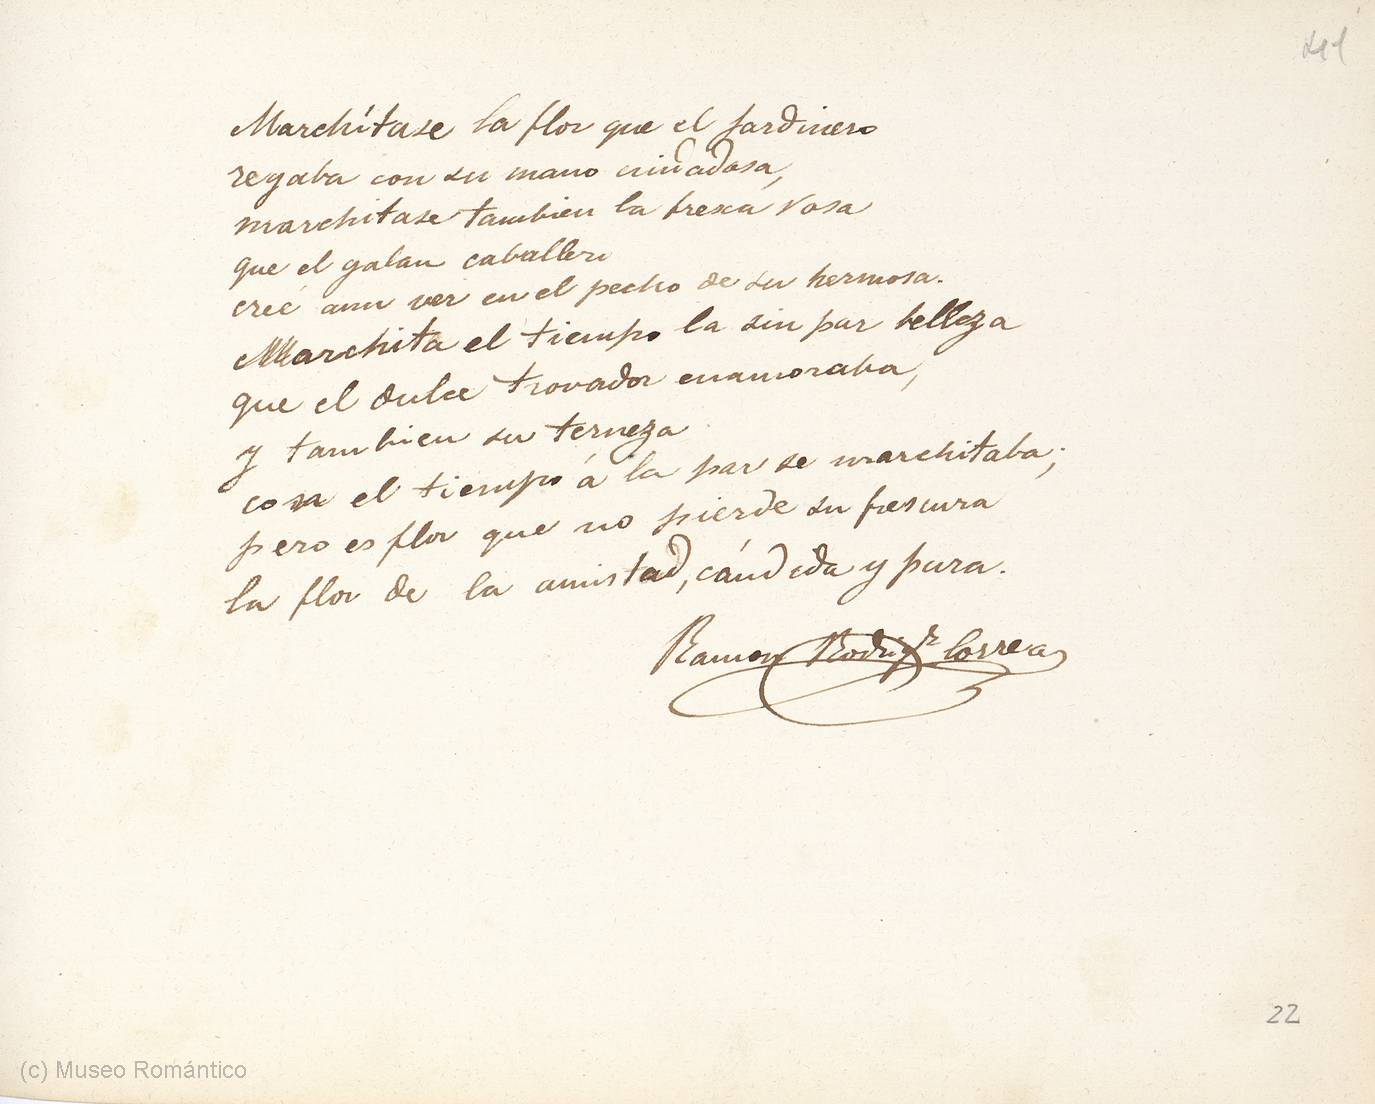 Marchítase la flor que el jardinero
regaba con su mano cuidadosa,
marchitase tambien la fresca rosa
que el galan caballero
creé aun ver en el pecho de su hermosa.
Marchita el tiempo la sin par belleza
que el dulce trovador enamoraba,
y tambien su terneza
con el tiempo á la par se marchitaba;
pero es flor que no pierde su frescura
la flor de la amistad, cándida y pura.
Ramon Rodrigz Correa
22
(c) Museo Romántico